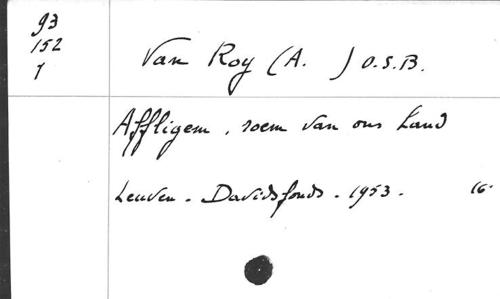 93
152
1
Van Roy (A. ) O.S.B.
Affligem, roem van ons Land
Leuven - Davidsfonds - 1953 - 16°